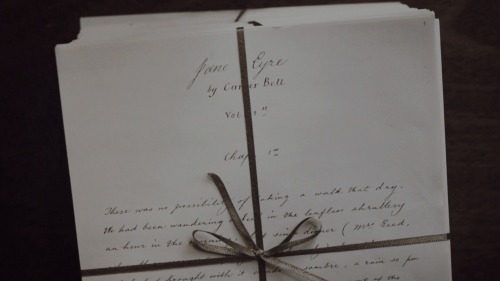 Jane Eyre
by Currer Bell
Vol. 1st
Chap. 1st
There was no possibility of taking a walk that day.
We had been wandering in the leafless shrubbery
an hour in the dinner (Mrs Reed,
brought with it a rain so
of the